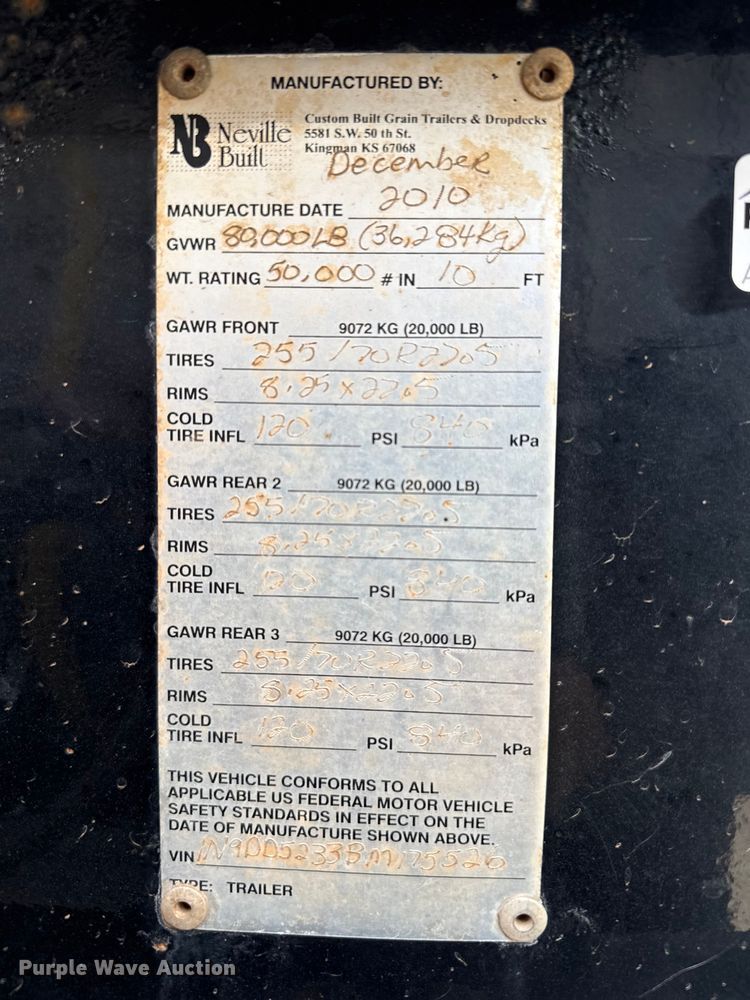 MANUFACTURED BY:
NB Neville Built
Custom Built Grain Trailers & Dropdecks
5581 S.W. 50 th St.
Kingman KS 67068
December
MANUFACTURE DATE 2010
GVWR 80,000LB (36,284Kg)
WT. RATING 50,000 # IN 10 FT
GAWR FRONT 9072 KG (20,000 LB)
TIRES 255/70R22.5
RIMS 8.25 x 22.5
COLD
TIRE INFL 120 PSI 840 kPa
GAWR REAR 2 9072 KG (20,000 LB)
TIRES 255/70R22.5
RIMS 8.25x22.5
COLD
TIRE INFL 120 PSI 840 kPa
GAWR REAR 3 9072 KG (20,000 LB)
TIRES 255/70R22.5
RIMS 8.25x22.5
COLD
TIRE INFL 120 PSI 840 kPa
THIS VEHICLE CONFORMS TO ALL
APPLICABLE US FEDERAL MOTOR VEHICLE
SAFETY STANDARDS IN EFFECT ON THE
DATE OF MANUFACTURE SHOWN ABOVE.
VIN
TYPE: TRAILER
Purple Wave Auction